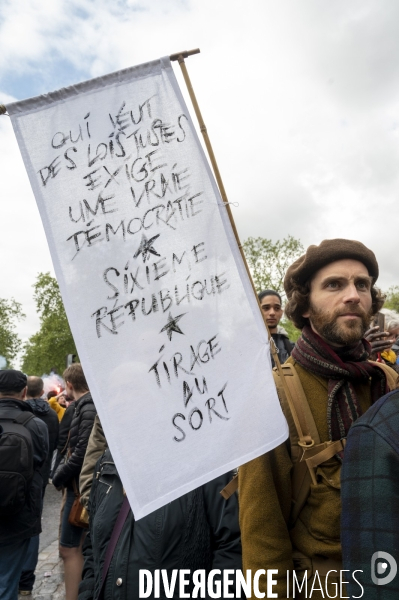 QUI VEUT
DES LOIS JUSTES
EXIGE
UNE VRAIE
DÉMOCRATIE
SIXIEME
RÉPUBLIQUE
TIRAGE
AU
SORT
DIVERGENCE IMAGES